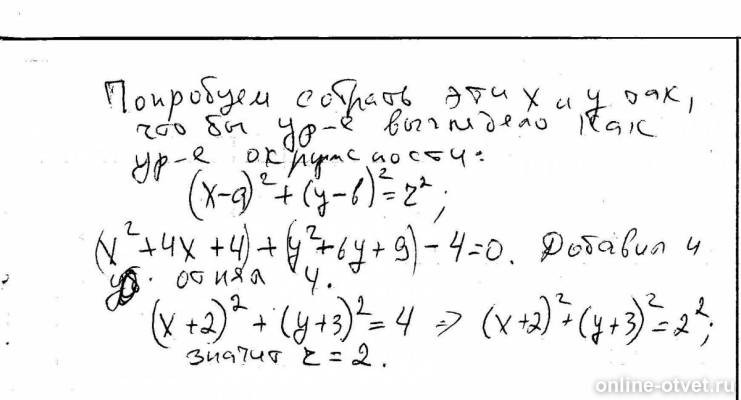 Попробуем собрать эти x и y так,
что бы ур-е выглядело как
ур-е окружности:
(x-a)² + (y-b)² = r²;
(x² + 4x + 4) + (y² + 6y + 9) - 4 = 0. Добавил и
отнял 4.
(x+2)² + (y+3)² = 4 => (x+2)² + (y+3)² = 2²;
значит r = 2.
online-otvet.ru